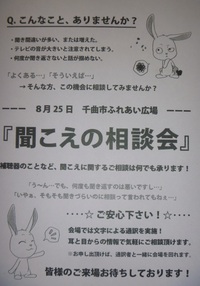 Q. こんなこと、ありませんか？
・聞き間違いが多い、または増えた。
・テレビの音が大きいと注意されてしまう。
・何度か聞き返さないと話が掴めない。
「よくある…」「そういえば…」
→ そんな方、この機会に相談してみませんか？
8月25日 千曲市ふれあい広場
『聞こえの相談会』
補聴器のことなど、聞こえに関するご相談は何でも承ります！
「う～ん…でも、何度も聞き返すのは悪いですし…」
「いやぁ、そもそも聞きづらいのに相談って言われてもねぇ…」
……☆ ご安心下さい！ ☆……
会場では文字による通訳を実施！
耳と目からの情報で気軽にご相談頂けます。
※お申し出頂けば、通訳者と一緒に会場を回れます。
皆様のご来場お待ちしております！